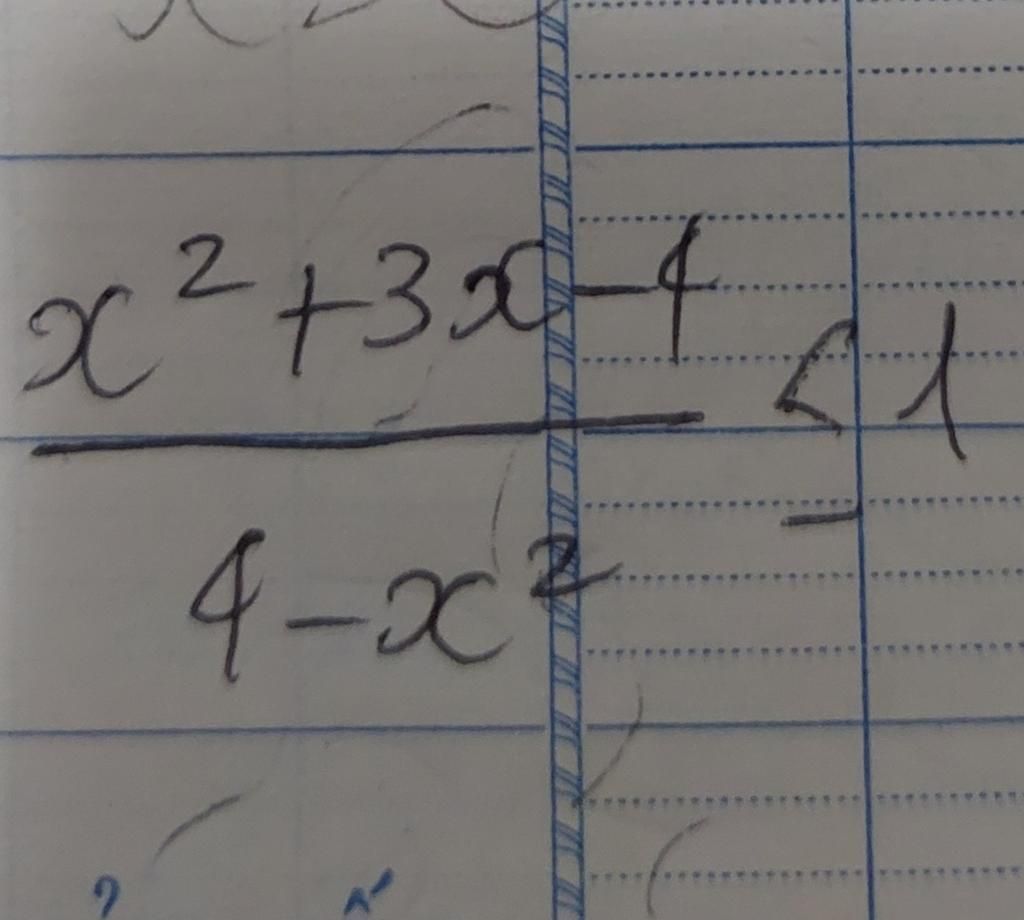 x² + 3x - 4
4 - x²
≤ 1